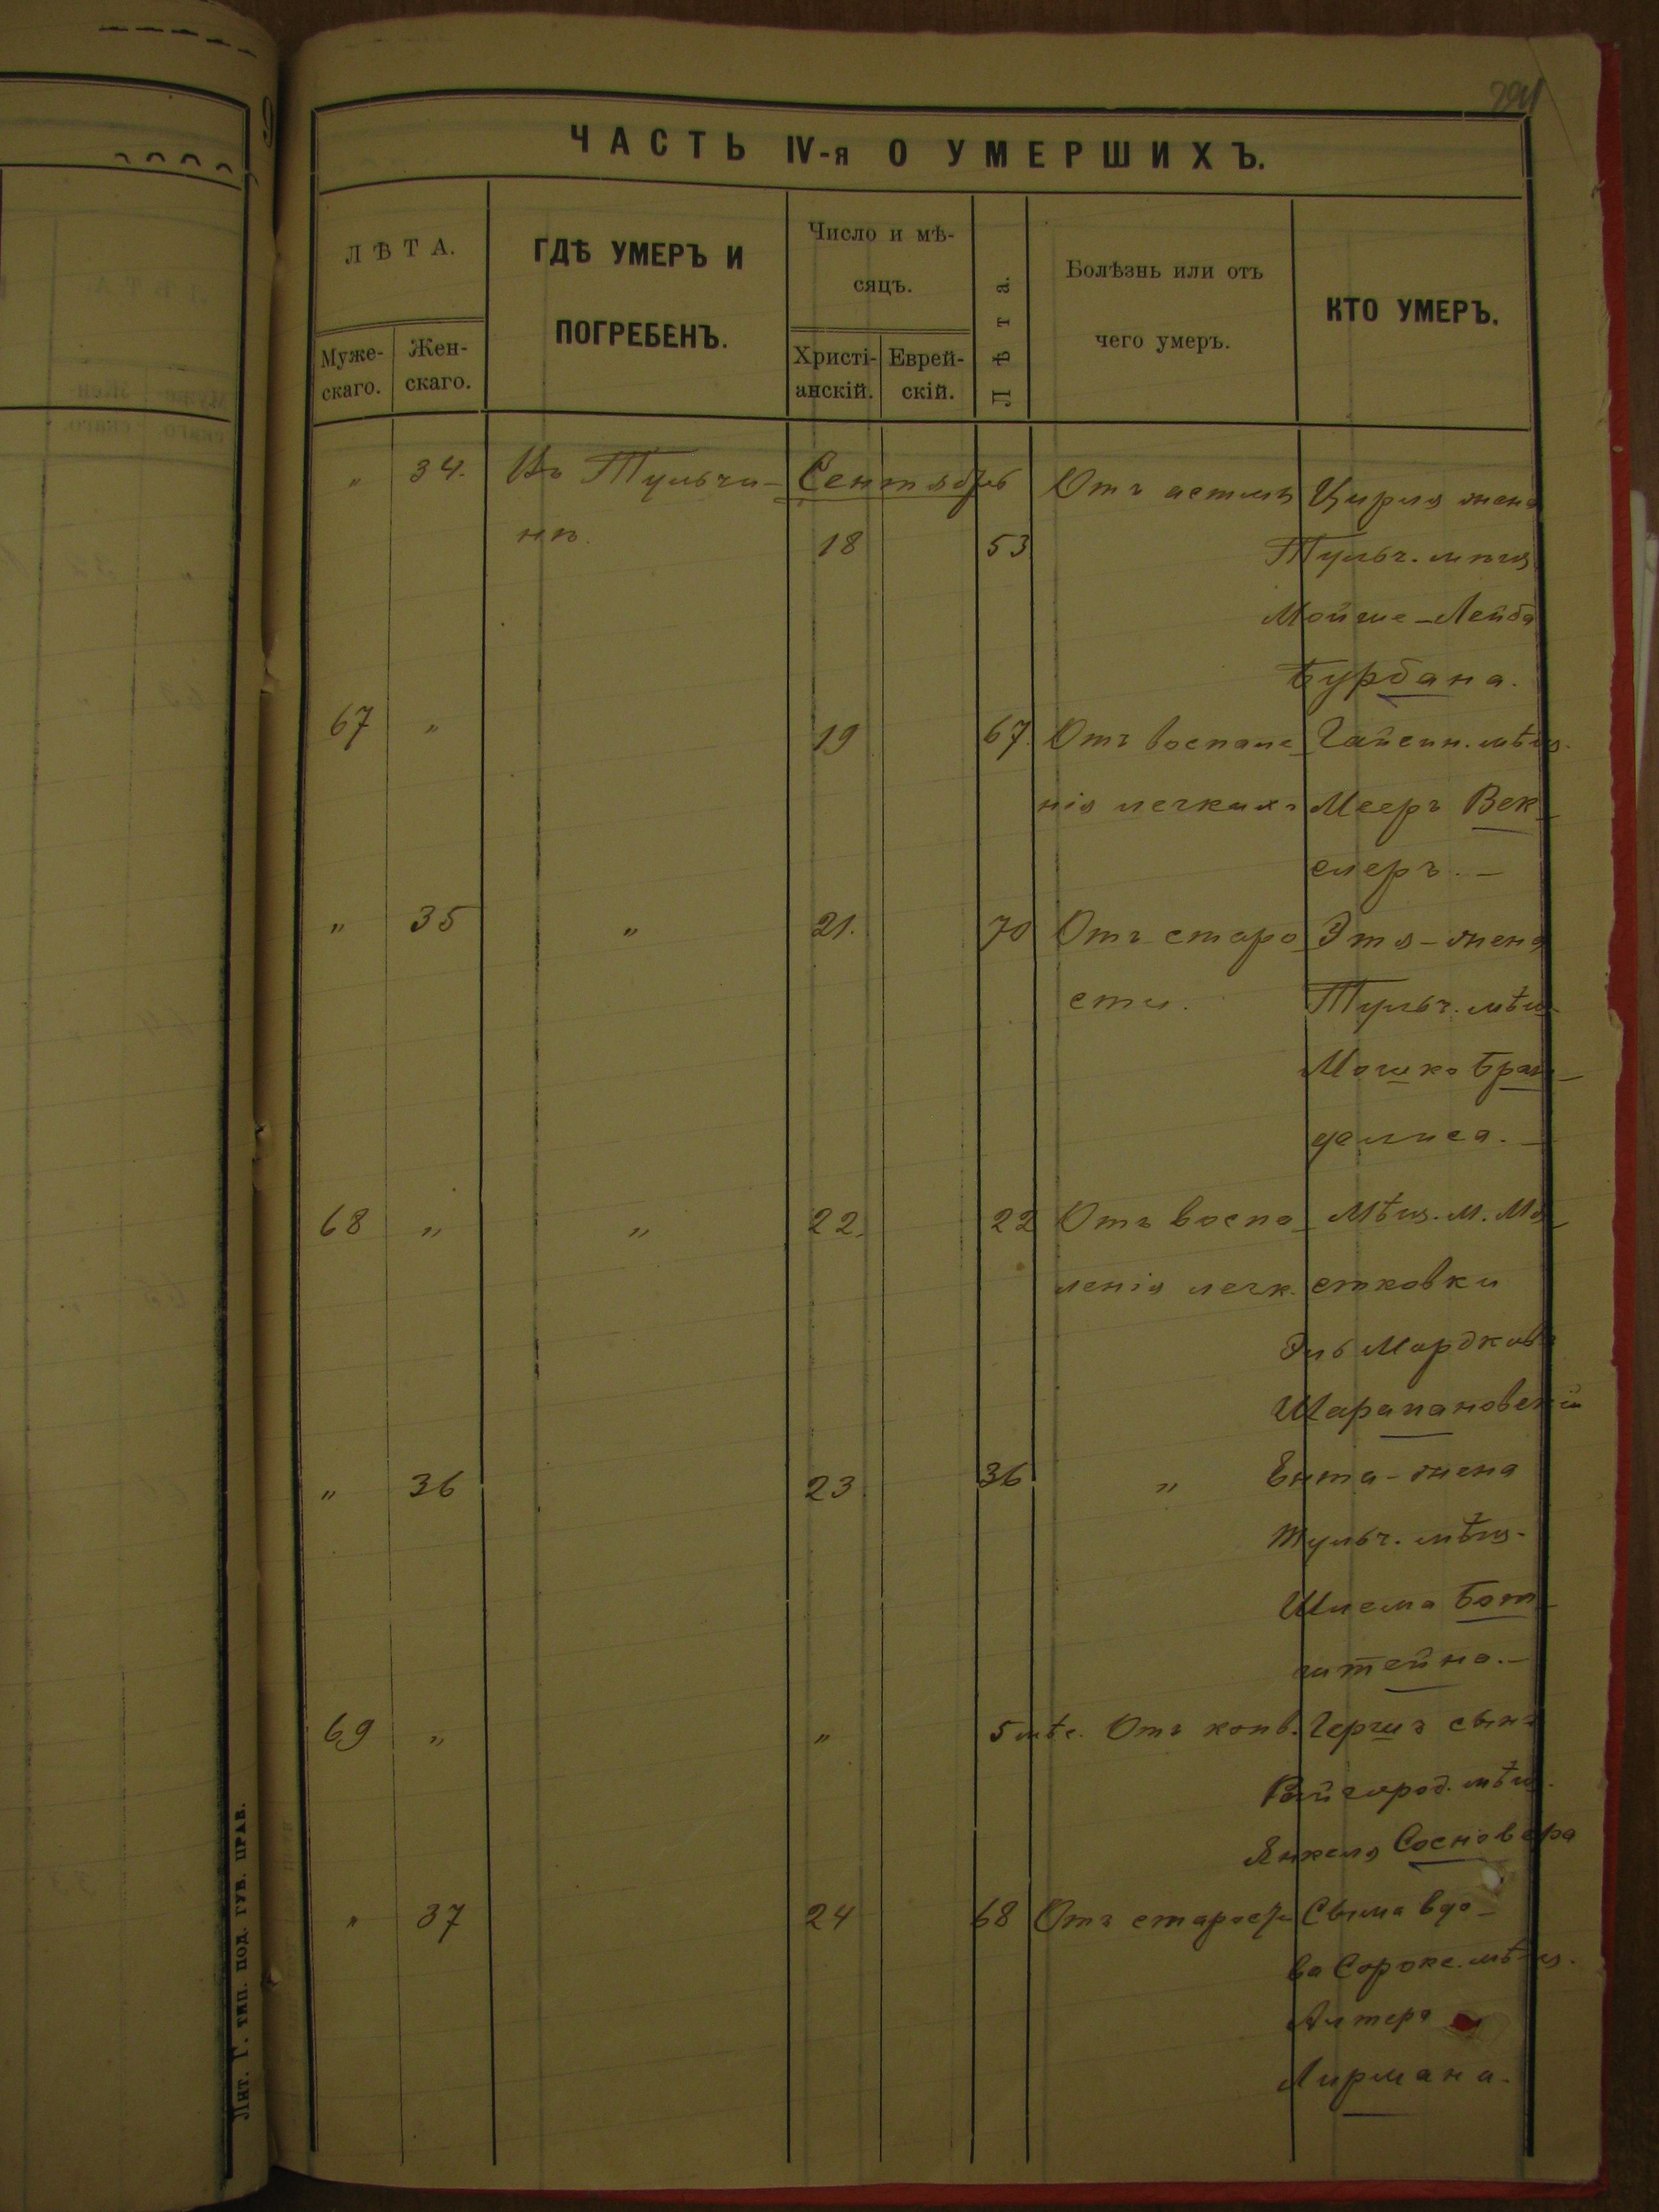 ЧАСТЬ IV-я О УМЕРШИХЪ.
ЛѢТА.
Муже-
скаго.
Жен-
скаго.
ГДѢ УМЕРЪ И
ПОГРЕБЕНЪ.
Число и мѣ-
сяцъ.
Христі-
анскій.
Еврей-
скій.
Лѣта.
Болѣзнь или отъ
чего умеръ.
КТО УМЕРЪ.
" 34. Въ Тульчи- Сентябрь Отъ астмы Цирля жена
нѣ. 18 53 Тульч. мѣщ
Мойше-Лейба
Бурбана.
67 " 19 67. Отъ воспале Гайсин. мѣщ.
нія легкихъ Мееръ Век-
слеръ. -
" 35 " 21. 70 Отъ старо Этя-жена
сти. Тульч. мѣщ-
Мошко Бран-
делиса. -
68 " " 22. 22 Отъ воспа- Мѣщ. м. Мя-
ленія легк. стковки
Эль Мордков
Шарапановскій
" 36 23. 36 " Ента-жена
Тульч. мѣщ-
Шлема Бот-
штейна. -
69 " " 5 мѣс. Отъ конв. Гершъ сынъ
Райгород. мѣщ.
Янкеля Сосновера
" 37 24 68 Отъ старости Сыма вдо-
ва Сорокс. мѣщ.
Алтера
Лирмана.
Лит. Г. тип. под. губ. прав.